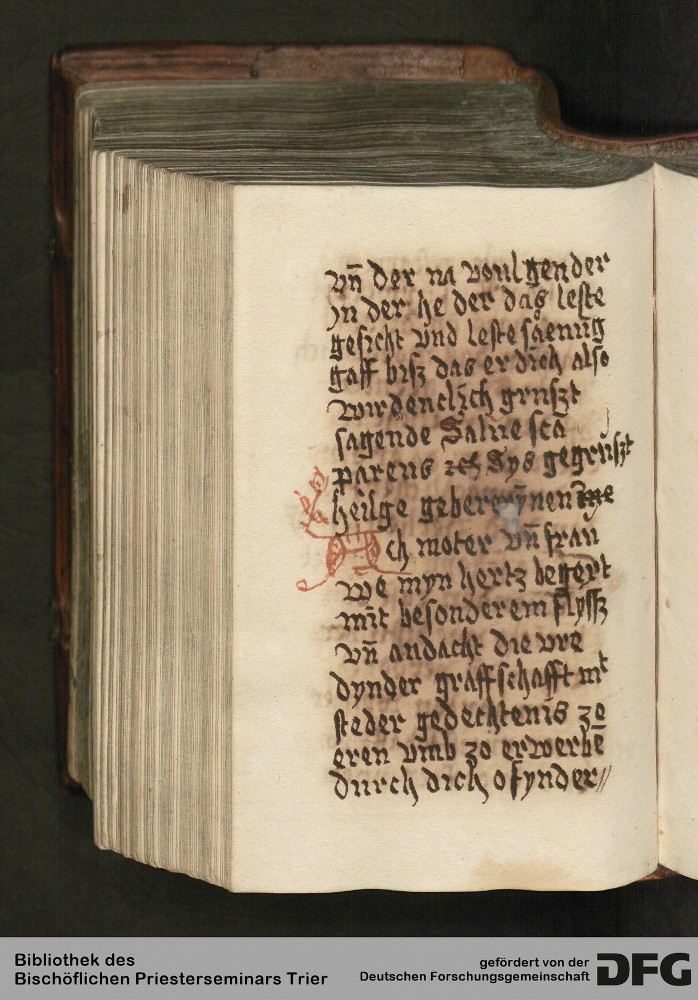 vn̄ der na voulgender
yn der he der das leste
gesicht vnd leste sāenūg
gaff bisz das er dich also
wirdenclich gruszt
sagende Salue scā
parens zc̄ Sys gegruszt
heilge gebererȳnen
Ach moter vn̄ frau
we myn hertz begert
mit besonderem flyssz
vn̄ andacht die vre
dynder graffschafft mt
steder gedechtenis zo
eren vmb zo erwerbē
durch dich o synder//
Bibliothek des
Bischöflichen Priesterseminars Trier
gefördert von der
Deutschen Forschungsgemeinschaft DFG